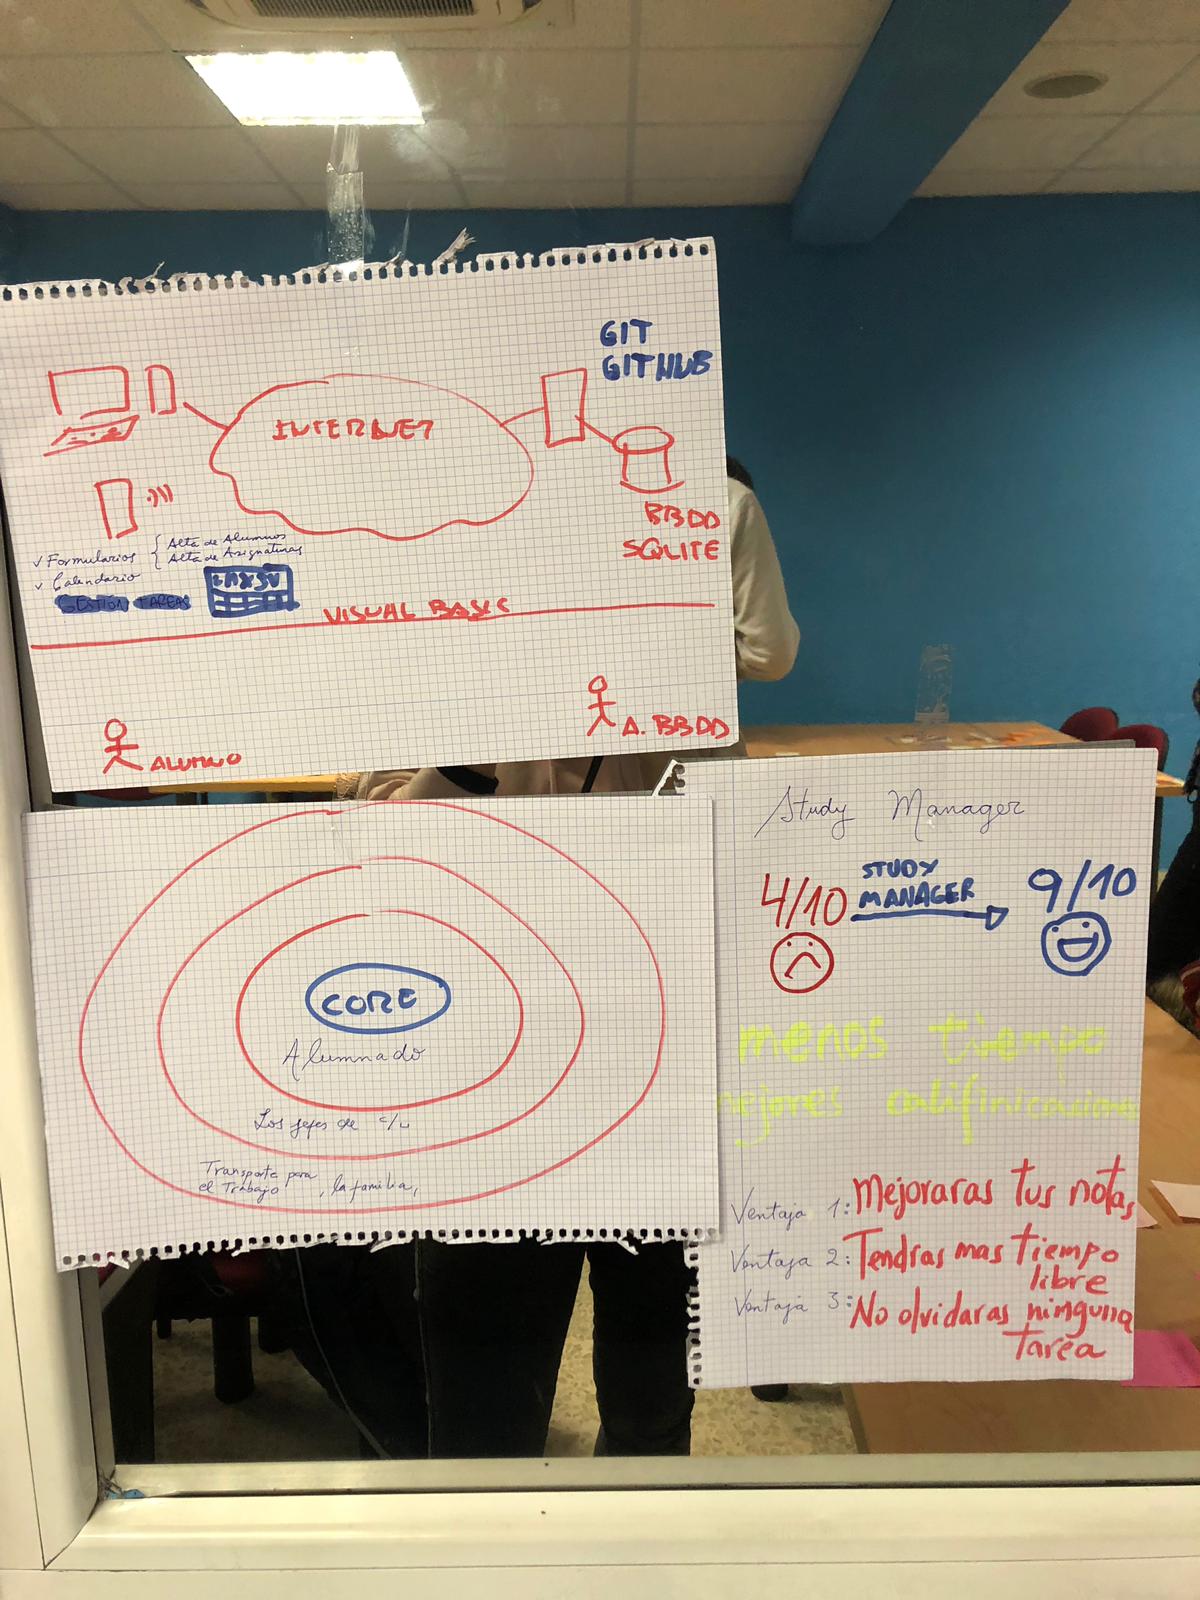 GIT
GITHUB
INTERNET
BBDD
SQLITE
✓ Formularios { Alta de Alumnos
Alta de Asignaturas
✓ Calendario
GESTION TAREAS
VISUAL BASIC
ALUMNO
A. BBDD
CORE
Alumnado
Los jefes de c/u
Transporte para
el Trabajo , la familia,
Study Manager
4/10 STUDY MANAGER 9/10
menos tiempo
mejores califinicasiones
Ventaja 1: Mejoraras tus notas
Ventaja 2: Tendras mas tiempo
libre
Ventaja 3: No olvidaras ninguna
tarea